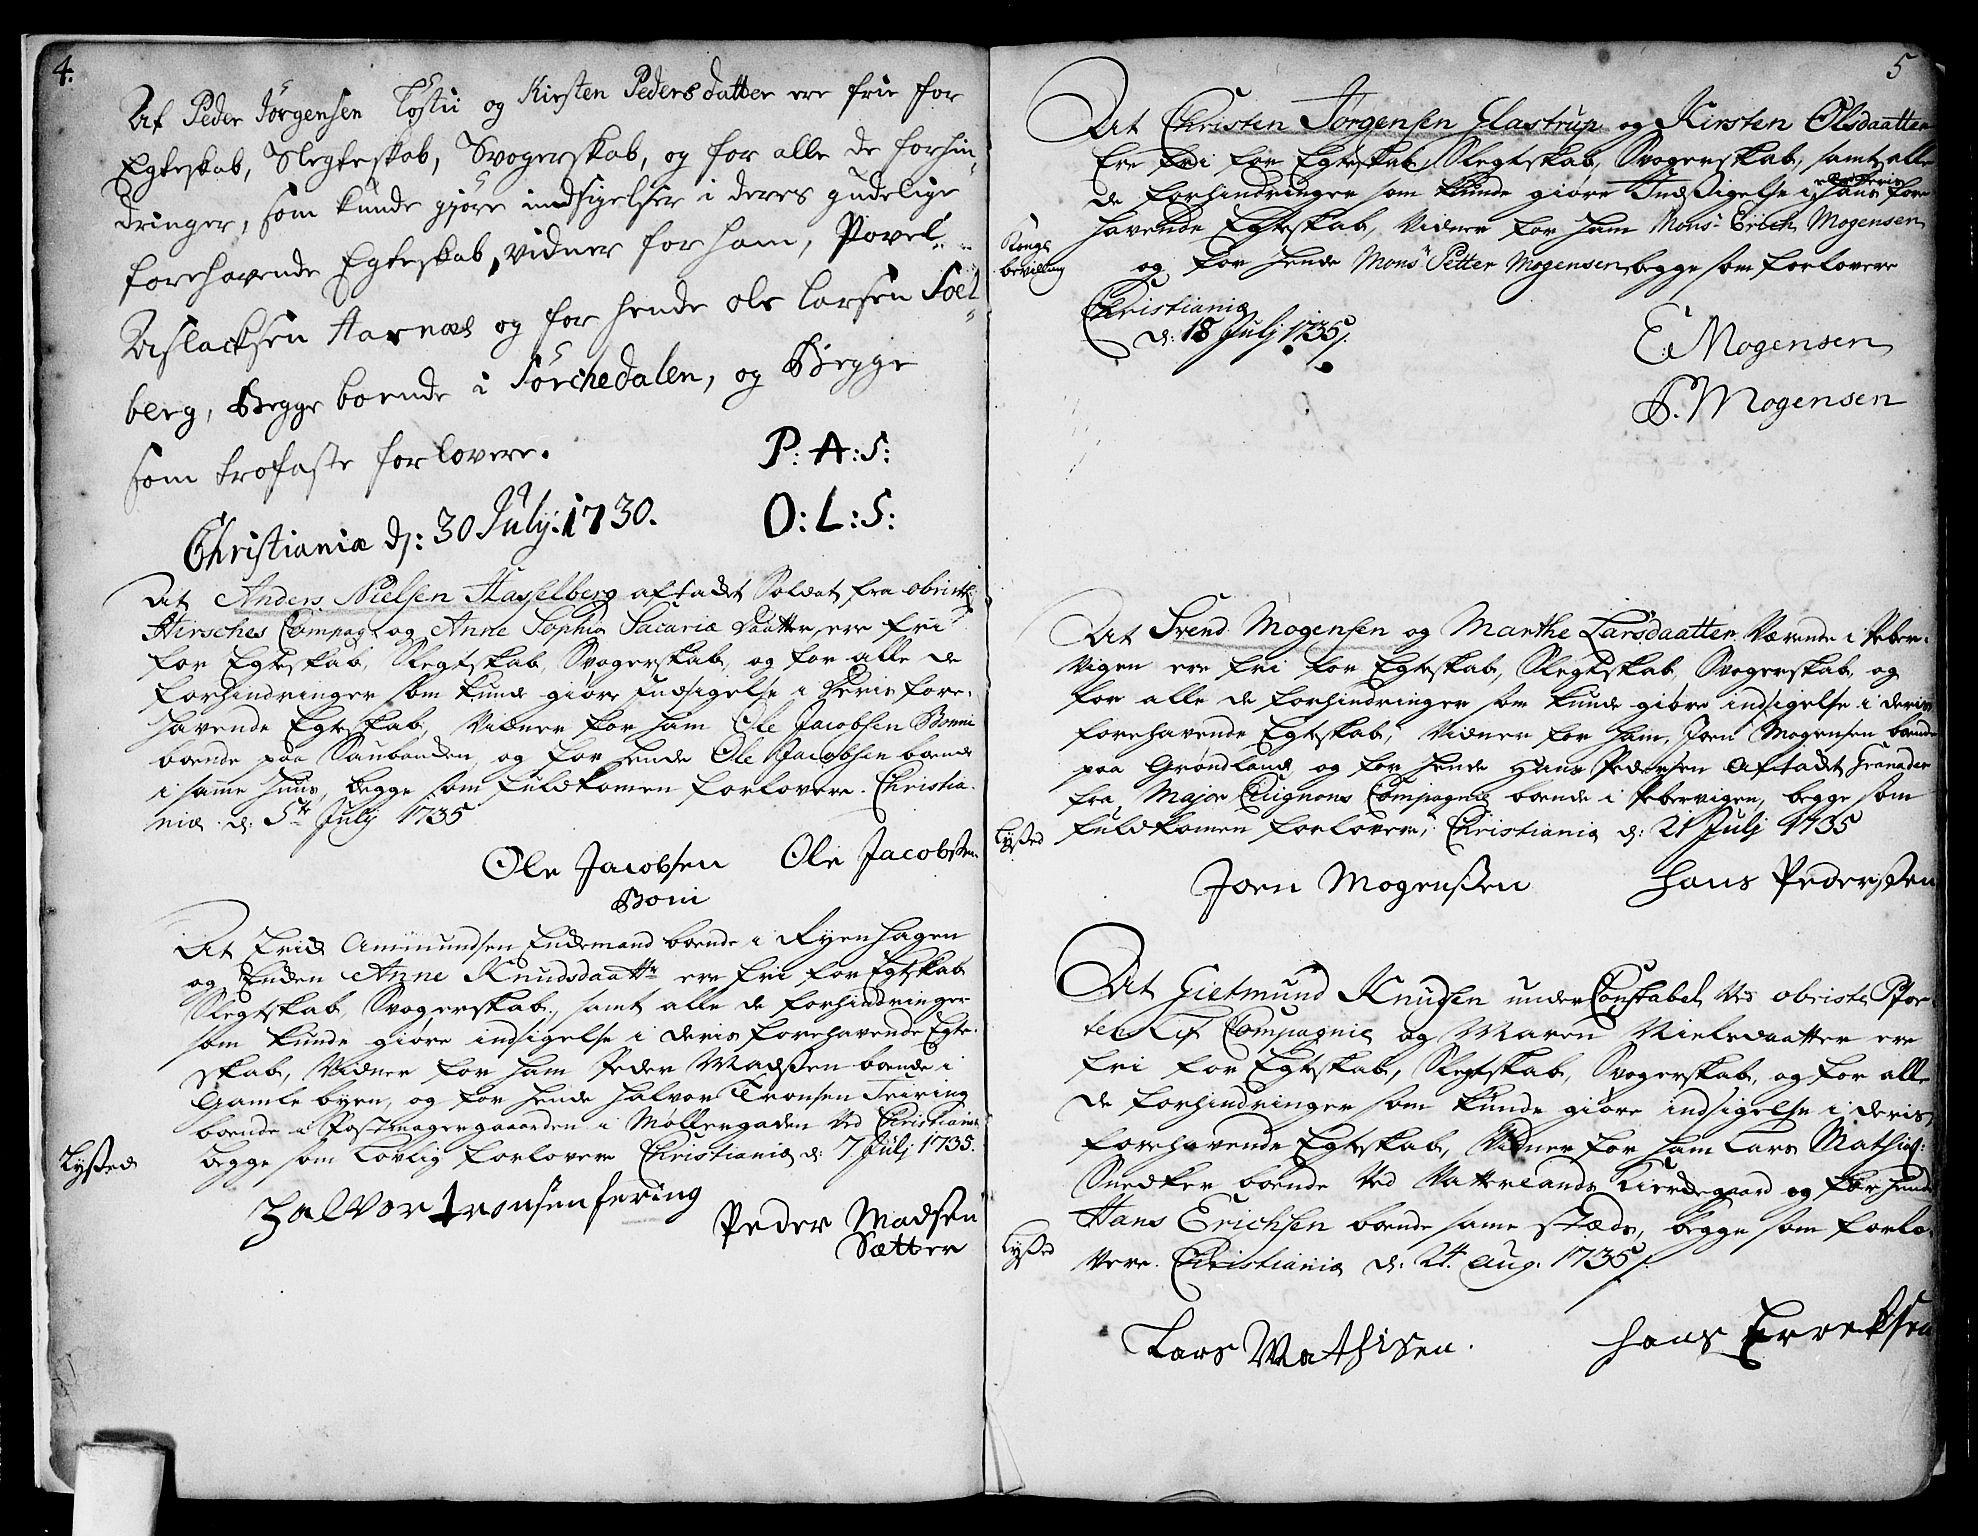 4.
At Peder Jörgensen Töstü og Kirsten Pedersdatter ere frie for
Egteskab, Slegteskab, Svogerskab, og for alle de forhin„
dringer, som kunde gjöre indsigelser i deres gudelige
forehavende Egteskab, vidner for ham, Povel
Aslacksen Aarnæs og for hende ole Larsen Soel„
berg, Begge boende i Sörchedalen, og Begge
som trofaste forlovere.
P: A: S:
O: L: S:
Christiania d: 30 July: 1730.
At Anders Nielsen Hasselberg aftadet Soldat fra obriste
Hirsches Compag. og Anne Sophia Sacaria Daatter ere fri
for Egteskab, Slegtskab, Svogerskab, og for alle de
forhindringer som kunde giöre Indsigelse i deris fore-
havende Egteskab, Vidner for ham Ole Jacobsen Bonni
boende paa Saubanden, og for hende Ole Jacobsen boende
i samme Huus, begge som fuldkomen forlovere. Christia-
niæ d: 5te July 1735
Ole Jacobsen Ole Jacobsen
Boni
At Erich Ammundsen Enkemand boende i Ryenhagen
og Enken Anne Knudsdaatter ere fri for Egteskab
Slegtskab, Svogerskab, samt alle de forhindringer
som kunde giöre indsigelse i deris forehavende Egte-
skab, Vidner for ham Peder Madsen boende i
Gamle byen, og for hende Halvor Tronsen Feiring
boende i Postmagergaarden i Møllergaden ved Christiania
begge som Lovlig forlovere Christiania d: 7 Julj 1735.
Lyßed
Halvor tronsen fering
Peder Madsen
Sætter
5
At Christen Jørgensen Glastrup og Kirsten Olsdaatter
Ere fri for Egteskab, Slegtskab, Svogerskab, samt alle
de forhindringer som kunde giöre Indsigelse i deris fore
havende Egteskab, Vidner for ham Mons: Erich Mogensen
Konge
bevilling
og for hende Mons: Petter Mogensen, begge som forlovere
Christiania
d: 18 Julj 1735
E. Mogensen
P. Mogensen
At Svend Mogensen og Marthe Larsdaatter Værende i Peber-
vigen ere fri for Egteskab, Slegtskab, Svogerskab, og
for alle de forhindringer som kunde giöre indsigelse i deris
forehavende Egteskab, Vidner for ham, Joen Mogensen boende
paa Grøndland og for hende Hans Pedersen Aftadet Granader
fra Major Cuignons Compagnie boende i Pebervigen, begge som
fuldkomen forlovere, Christiania d: 21 Julj 1735
Lyßed
Joen Mogenßen Hans Pederßen
At Gietmund Knudsen underConstabel ved obriste Stor-
Compagnie og Maren Nielsdaatter ere
fri for Egteskab, Slegtskab, Svogerskab, og for alle
de forhindringer som kunde giöre indsigelse i deris
forehavende Egteskab, Vidner for ham Lars Mathias:
Snedker boende ved Vatterlands Kierkegaard og for hende
Hans Erichsen boende same stæds, begge som forlo-
vere. Christiania d: 24 aug. 1735
Lyßed
Lars Mathisen. Hans Erreksen